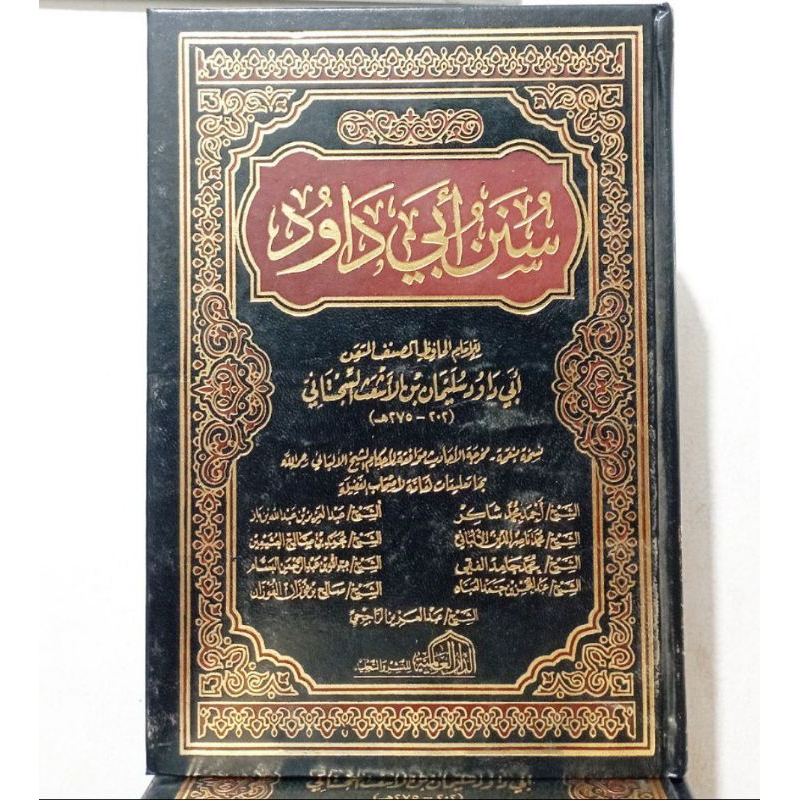 سُنَنُ أَبِي دَاوُد
للإمام الحافظ المصنف المتقن
أبي داود سليمان بن الأشعث السجستاني
(٢٠٢ - ٢٧٥هـ)
نسخة منقحة - مخرجة الأحاديث موافقة لأحكام الشيخ الألباني رحمه الله
بها تعليقات لأصحاب الفضيلة
الشيخ/ أحمد محمد شاكر الشيخ/ عبد العزيز بن عبد الله بن باز
الشيخ/ محمد ناصر الدين الألباني الشيخ/ محمد بن صالح العثيمين
الشيخ/ محمد حامد الفقي الشيخ/ عبد الله بن عبد الرحمن البسام
الشيخ/ عبد المحسن بن حمد العباد الشيخ/ صالح بن فوزان الفوزان
الشيخ/ عبد العزيز الراجحي
الدار العالمية للنشر والتجليد
أبي داود سليمان بن الأشعث السجستاني
(٢٠٢ - ٢٧٥هـ)